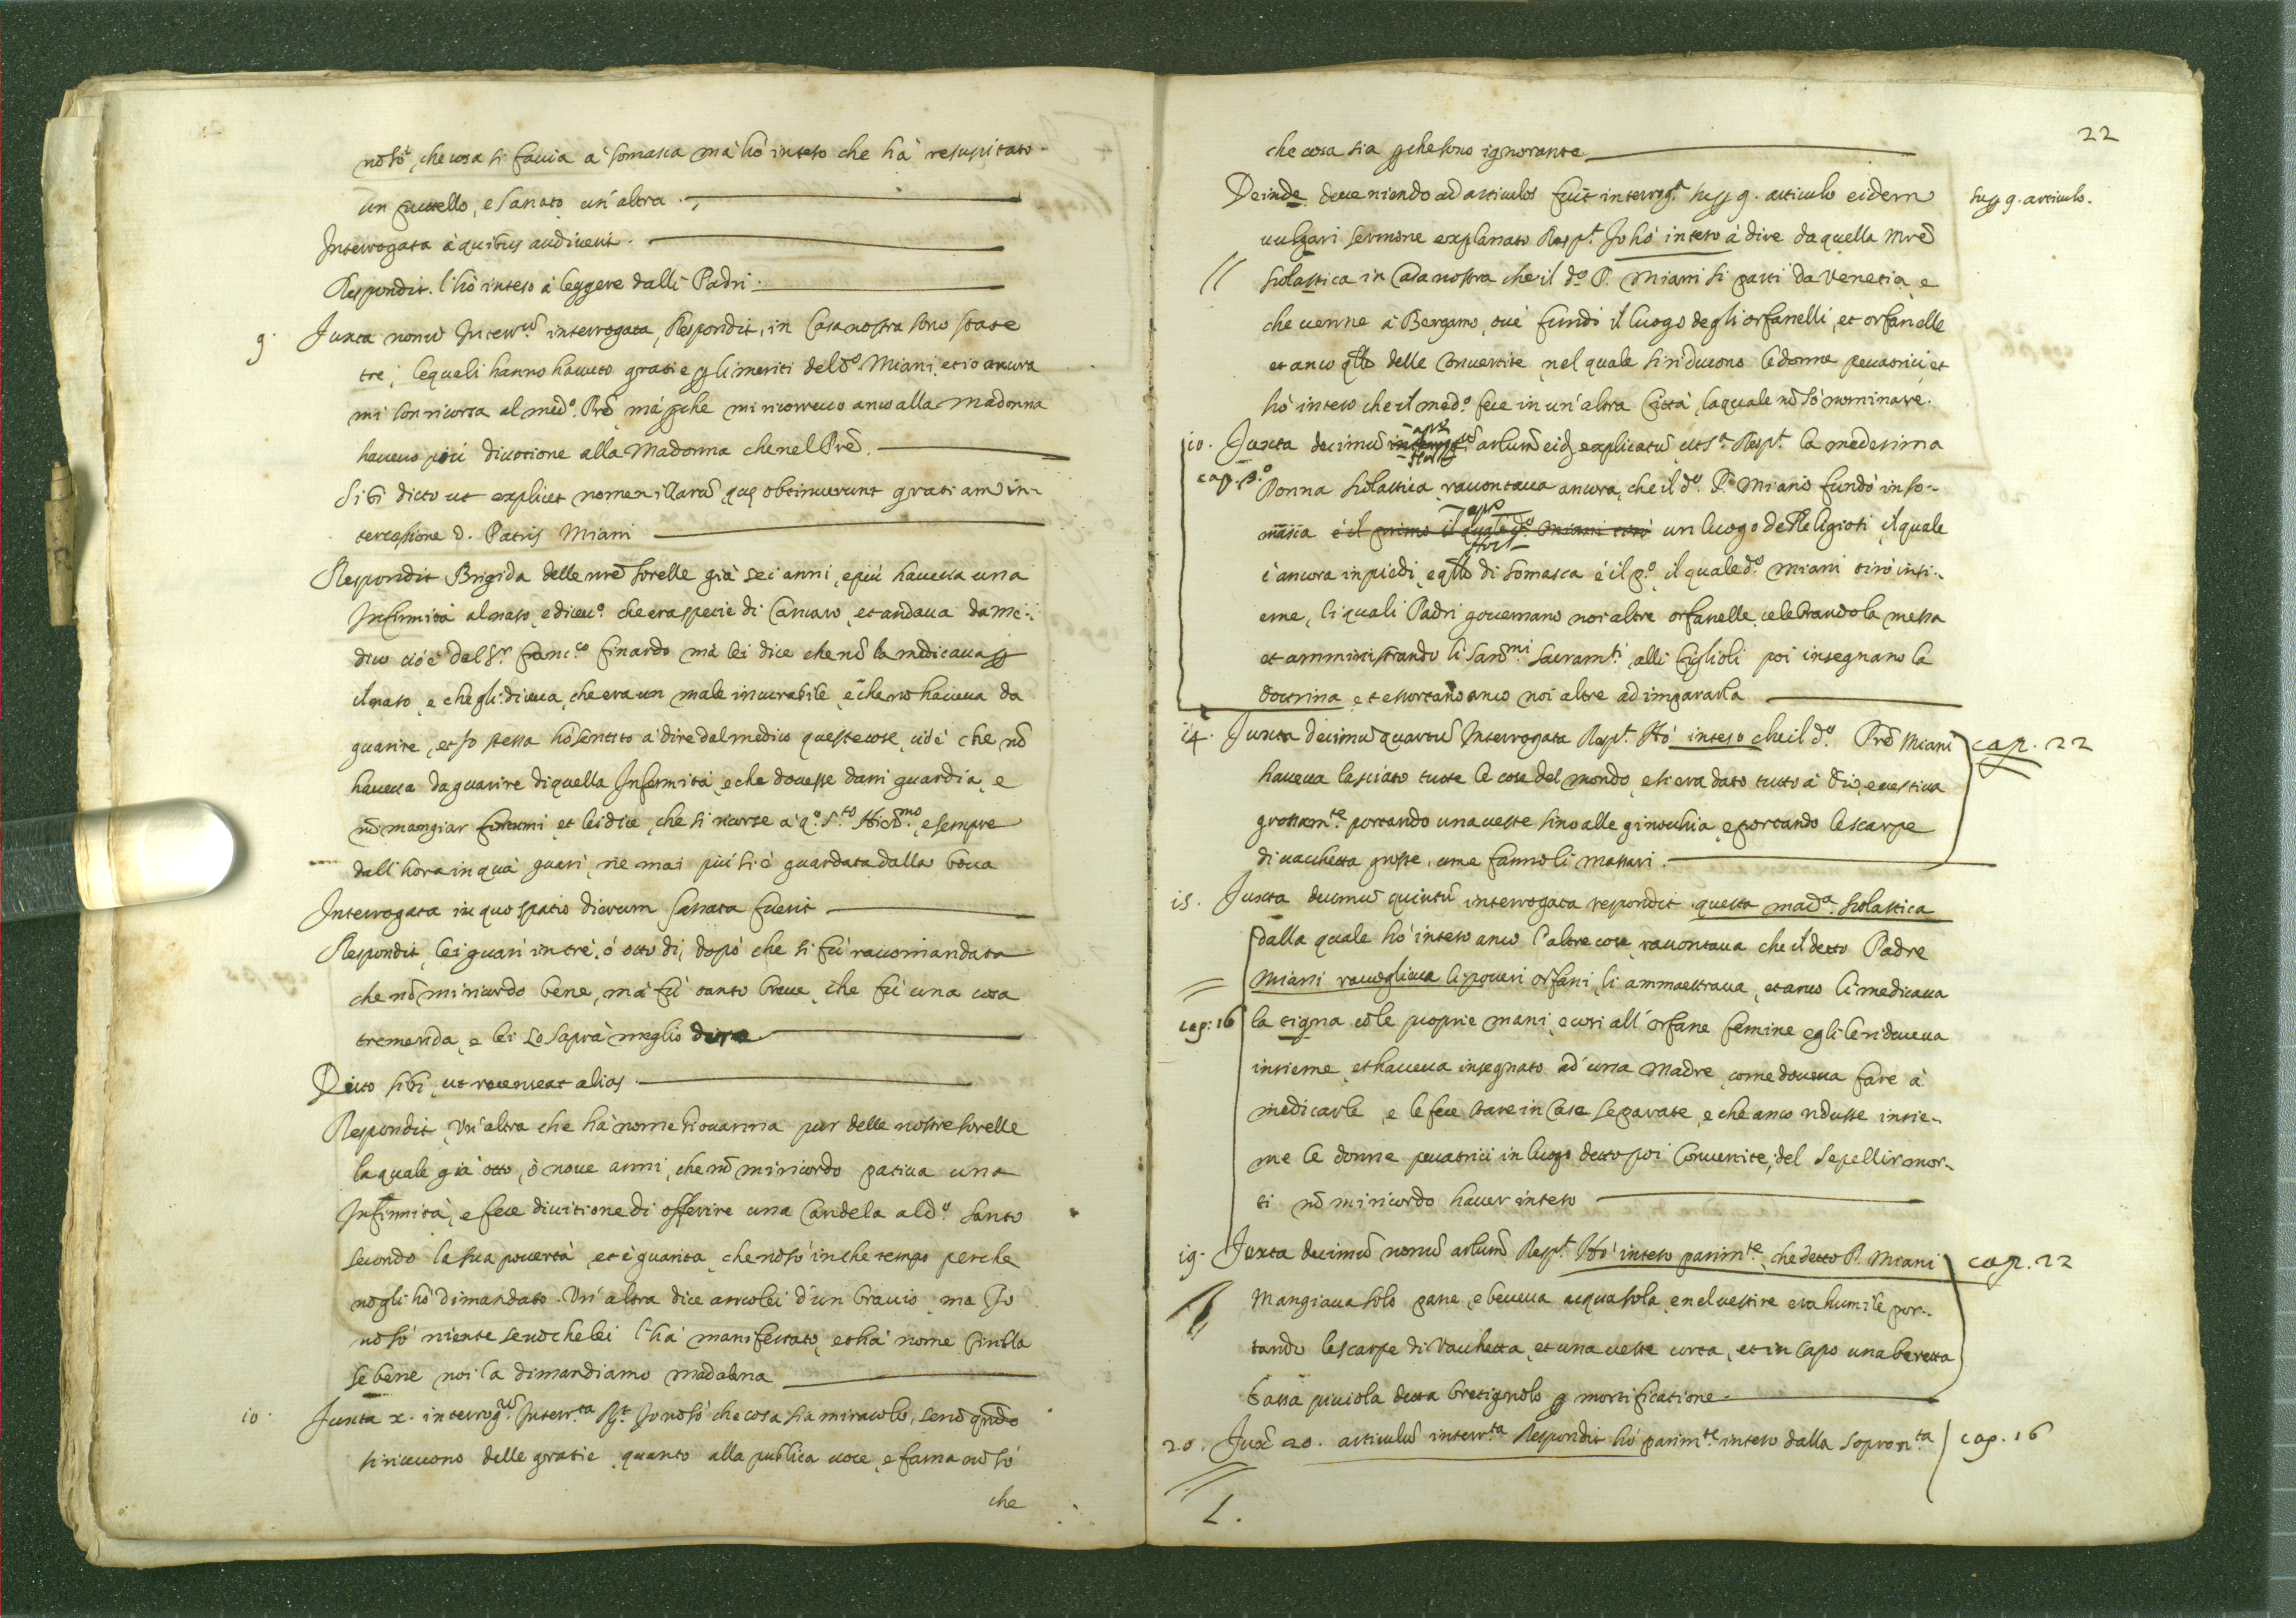 nõ sò, che cosa si faccia à Somasca mà hò inteso che hà resuscitato
un puttello, e sanato un'altra.
Interrogata à quibus audiverit.
Respondit. l'hò inteso à leggere dalli Padri.
9. Juxta nonũ Interr.ũ interrogata, Respondit, in Casa nostra sono state
tre, lequali hanno havuto gratie p li meriti del dº Miani, et io ancora
mi son ricorsa al medº. Prẽ, mà pche mi ricorrevo anco alla Madonna
havevo più divotione alla Madonna che nel Prẽ.
Sibi dicto ut explicet nomen illarũ, quę obtinuerunt gratiam in-
tercessione d. Patris Miani
Respondit Brigida delle nrẽ sorelle già sei anni, e più haveva una
Infirmità al naso, e dicevº. che era specie di Cancaro, et andava da Me-
dico cioè dal Sr. Franc.co Finardo mà lei dice che nõ la medicava p
il naso, e che gli diceva, che era un male incurabile, e che nõ haveva da
guarire, et Io stessa hò sentito à dire dal medico queste cose, cioè che nõ
haveva da guarire di quella Infermità, e che dovesse darsi guardia, e
nõ mangiar et lei dice, che si ricorse à qº. S.to Hierõ.mo, e sempre
dall'hora in quà guarì, ne mai più si è guardata dalla bocca
Interrogata in quo spatio dierum sanata fuerit
Respondit, lei guarì in tre, ò otto dì, dopò che si fù raccomandata
che nõ mi ricordo bene, mà fù tanto breve, che fù una cosa
tremenda, e lei lo saprà meglio dire
Dicto sibi, ut recenseat alias.
Respondit, Un'altra che hà nome Giovanna pur delle nostre sorelle
la quale già otto, ò nove anni, che nõ mi ricordo pativa una
Infirmità, e fece divotione di offerire una Candela al dº. Santo
secondo la sua povertà, et è guarita, che nõ sò in che tempo perche
nõ gli hò dimandato. Un'altra dice anco lei d'un braccio, ma Io
nõ sò niente se nõ che lei l'hà manifestato, et hà nome
se bene noi la dimandiamo Madalena
10. Juxta x. interrog.ũ Interr.ta Rt. Io nõ sò che cosa sia miracolo, se nõ qñdo
si ricevono delle gratie, quanto alla publica voce, e fama nõ sò
che
22
che cosa sia p che sono ignorante
Deinde deveniendo ad articulos fuit interrog.ta sup 9. articulo eidem
sup 9. articulo.
vulgari sermone explanato Resp.t Io hò inteso à dire da quella Mrẽ
Scolastica in Casa nostra che il dº. P. Miani si partì da Venetia, e
che venne à Bergamo, ove fundò il luogo degli orfanelli, et orfanelle
et anco qllo delle Convertite, nel quale si riducono le donne peccatrici, et
hò inteso che il medº. fece in un'altra Città, la quale nõ sò nominare.
10. Juxta decimũ artlum eidẽ explicatũ ut sª. Resp.t la medesima
cap. 8.º
Donna Scolastica raccontava ancora, che il dº. P. Miani fundò in So-
masca è il primo il quale dº Miani tirò un luogo de Religiosi, il quale
è ancora in piedi, e qllo di Somasca è il pº. il quale dº. Miani tirò insi-
eme, li quali Padri governano noi altre orfanelle celebrando la messa
et amministrando li San.mi Sacram.ti, alli figlioli poi insegnano la
dottrina, et essortano anco noi altre ad impararla
14. Juxta decimũ quartũ Interrogata Resp.t Hò inteso che il dº. Prẽ Miani
cap. 22
haveva lasciato tutte le cose del mondo, e si era dato tutto à Dio, e vestiva
grossam.te portando una veste sino alle ginocchia, e portando le scarpe
di vacchetta grosse, come fanno li massari.
15. Juxta decimũ quintũ interrogata respondit questa mad.a Scolastica
dalla quale hò inteso anco l'altre cose, raccontava che il detto Padre
Miani raccogliava li poveri orfani, li ammaestrava, et anco li medicava
cap: 16
la tigna cõ le proprie mani, e così all'orfane femine egli le riduceva
insieme, et haveva insegnato ad una Madre, come doveva fare à
medicarle, e le fece stare in Case separate, e che anco ridusse insie-
me le donne peccatrici in luogo detto poi Convertite, del sepellir mor-
ti nõ mi ricordo haver inteso
19. Juxta decimũ nonũ artlum Resp.t Hò inteso parim.te, che detto P. Miani
cap. 22
Mangiava solo pane, e beveva acqua sola, e nel vestire era humile por-
tando le scarpe di Vacchetta, et una veste corta, et in capo una beretta
bassa picciola detta bretignolo p mortificatione.
20. Juxᵃ 20. articulũ interr.ta Respondit hò parim.te inteso dalla sopran.ta
cap. 16
L.